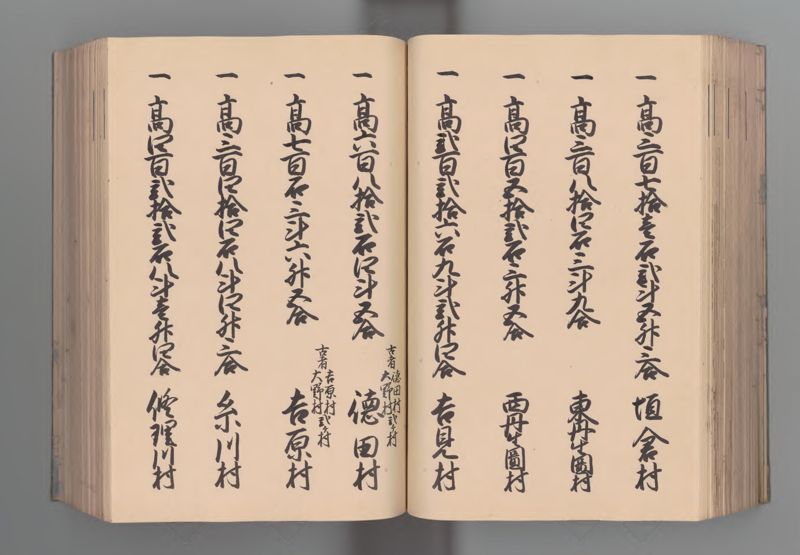 一 高三百七拾壱石弐斗五升三合 垣倉村
一 高三百八拾四石三斗九合 東丹生図村
一 高四百五拾弐石三升五合 西丹生図村
一 高弐百弐拾六石九斗弐升四合 吉見村
一 高六百八拾弐石四斗五合 徳田村
古者徳田村弐ヶ村
大野村
一 高七百石三斗六升五合 吉原村
古者吉原村弐ヶ村
大野村
一 高三百四拾四石八斗四升三合 糸川村
一 高四百弐拾弐石八斗壱升四合 修理川村